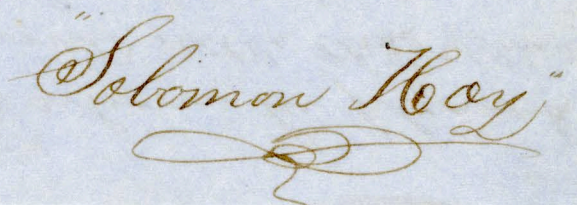 "Solomon Hoy"